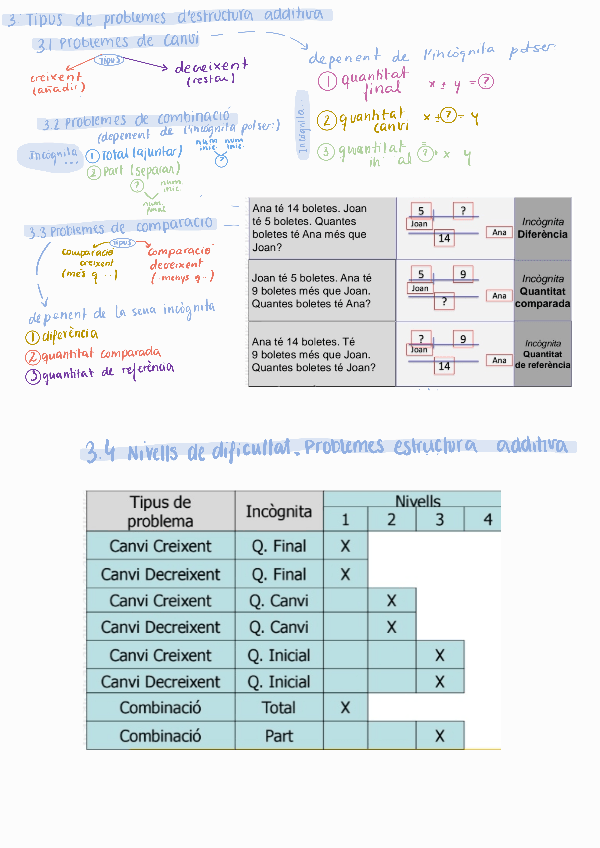 3 Tipus de problemes d'estructura additiva
3.1 Problemes de canvi
TIPUS
creixent
(añadir)
decreixent
(restar)
depenent de l'incògnita potser
Incògnita
1 quantitat
final x ± y = ?
2 quantitat
canvi x ± ? = y
3 quantitat
? ± x y
3.2 Problemes de combinació
(depenent de l'incògnita potser:)
Incògnita
...
1 Total (ajuntar)
núm inic. núm inic.
?
2 Part (separar)
? núm inic.
núm final
3.3 Problemes de comparació
TIPUS
comparació
creixent
(més q..)
comparació
decreixent
(menys q..)
depenent de la seua incògnita
1 diferència
2 quantitat comparada
3 quantitat de referència
Ana té 14 boletes. Joan
té 5 boletes. Quantes
boletes té Ana més que
Joan?
5 ?
Joan
14
Ana
Incògnita
Diferència
Joan té 5 boletes. Ana té
9 boletes més que Joan.
Quantes boletes té Ana?
5 9
Joan
?
Ana
Incògnita
Quantitat
comparada
Ana té 14 boletes. Té
9 boletes més que Joan.
Quantes boletes té Joan?
? 9
Joan
14
Ana
Incògnita
Quantitat
de referència
3.4 Nivells de dificultat. Problemes estructura additiva
Tipus de
problema
Incògnita
Nivells
1 2 3 4
Canvi Creixent Q. Final X
Canvi Decreixent Q. Final X
Canvi Creixent Q. Canvi X
Canvi Decreixent Q. Canvi X
Canvi Creixent Q. Inicial X
Canvi Decreixent Q. Inicial X
Combinació Total X
Combinació Part X